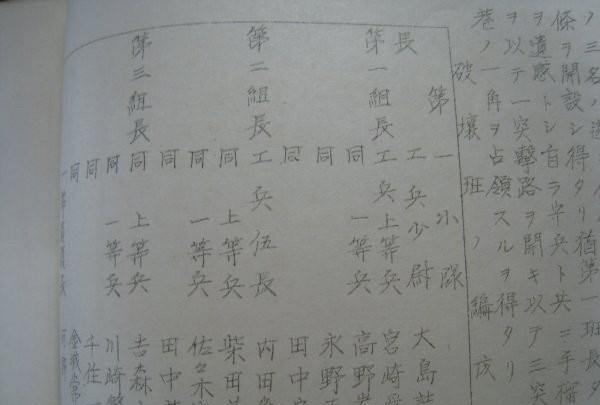 ノ三名ノ
條ヲ開設シ得タリ猶第一班長タ
ヲ遺憾トシ自ラ守兵ト共ニ手榴
ヲ以テ一突撃路ヲ開キ以テ三突
巻ノ一角ヲ占領スルヲ得タリ
破壊班ノ編成
第一小隊
長 工兵少尉 大島
第一組長 工兵上等兵 宮崎
同 一等兵 高野
同 永野
同 田中
第二組長 工兵伍長 内田
同 上等兵 柴田
同 一等兵 佐々木
同 田中
第三組長 同 上等兵 吉森
同 一等兵 川崎
同 千住
同